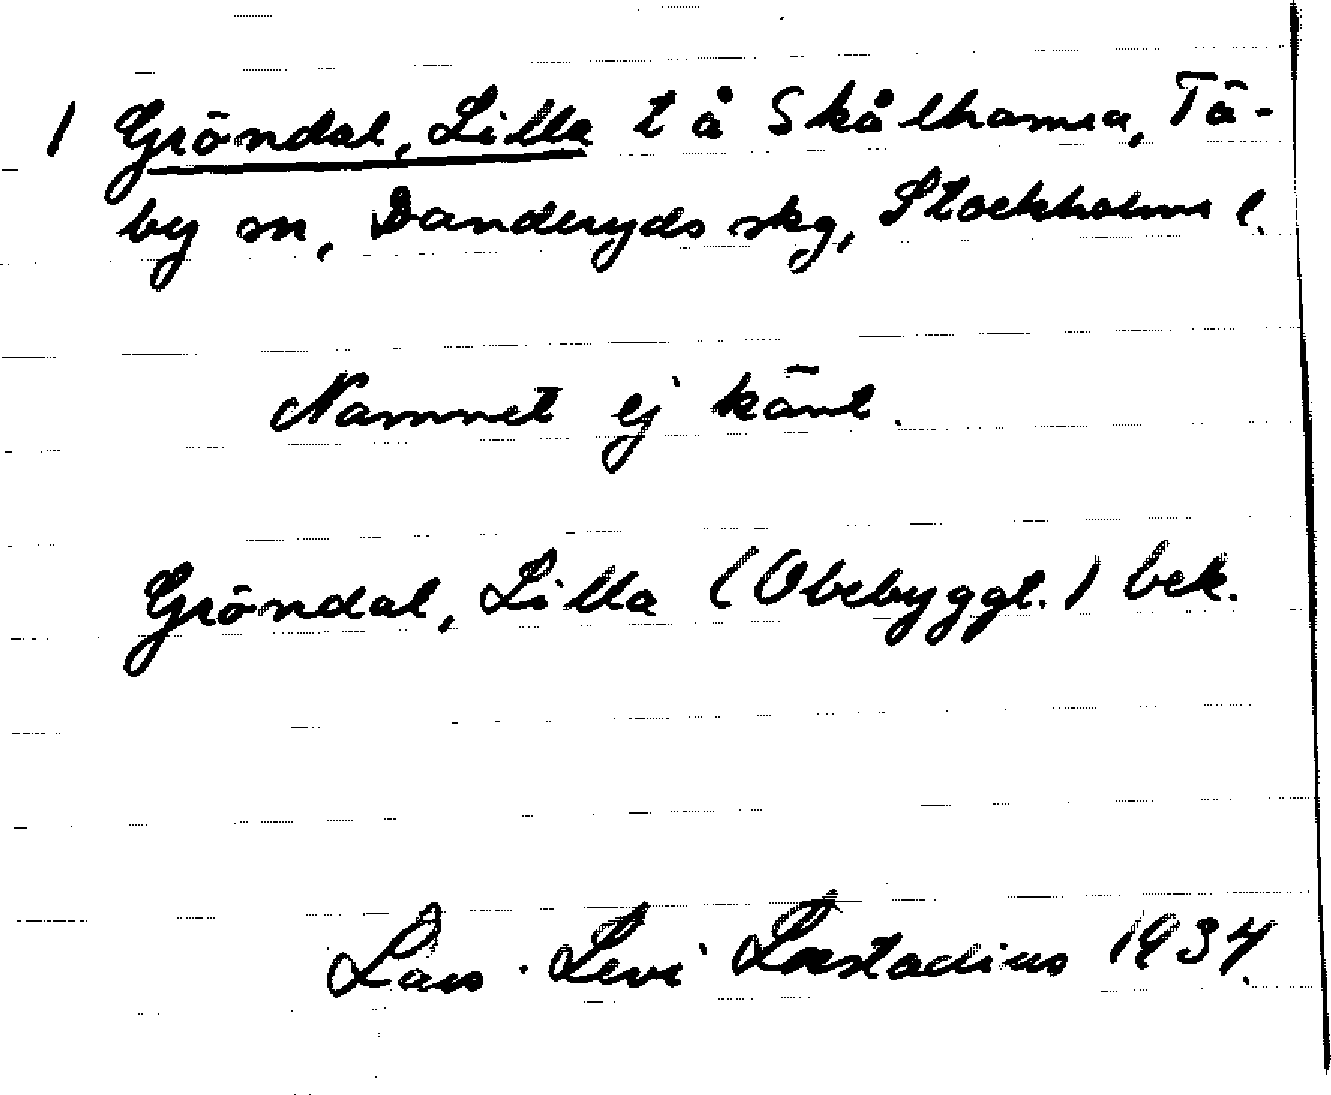 1 Gröndal, Lilla t å Skålhamra, Tä-
by sn, Danderyds skg, Stockholms l.
Namnet ej känt.
Gröndal, Lilla (Obebyggt.) bek.
Lars-Levi Læstadius 1934.